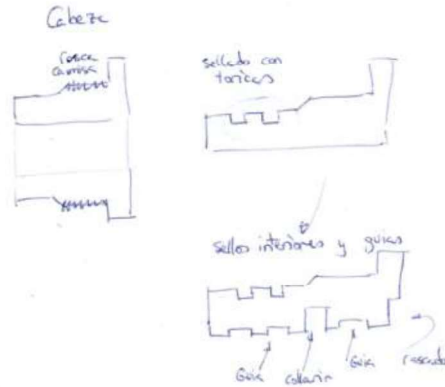 Cabeza
rosca
camisa
sellado con
toricas
sellos interiores y guias
Guia
collarin
Guia
rascador